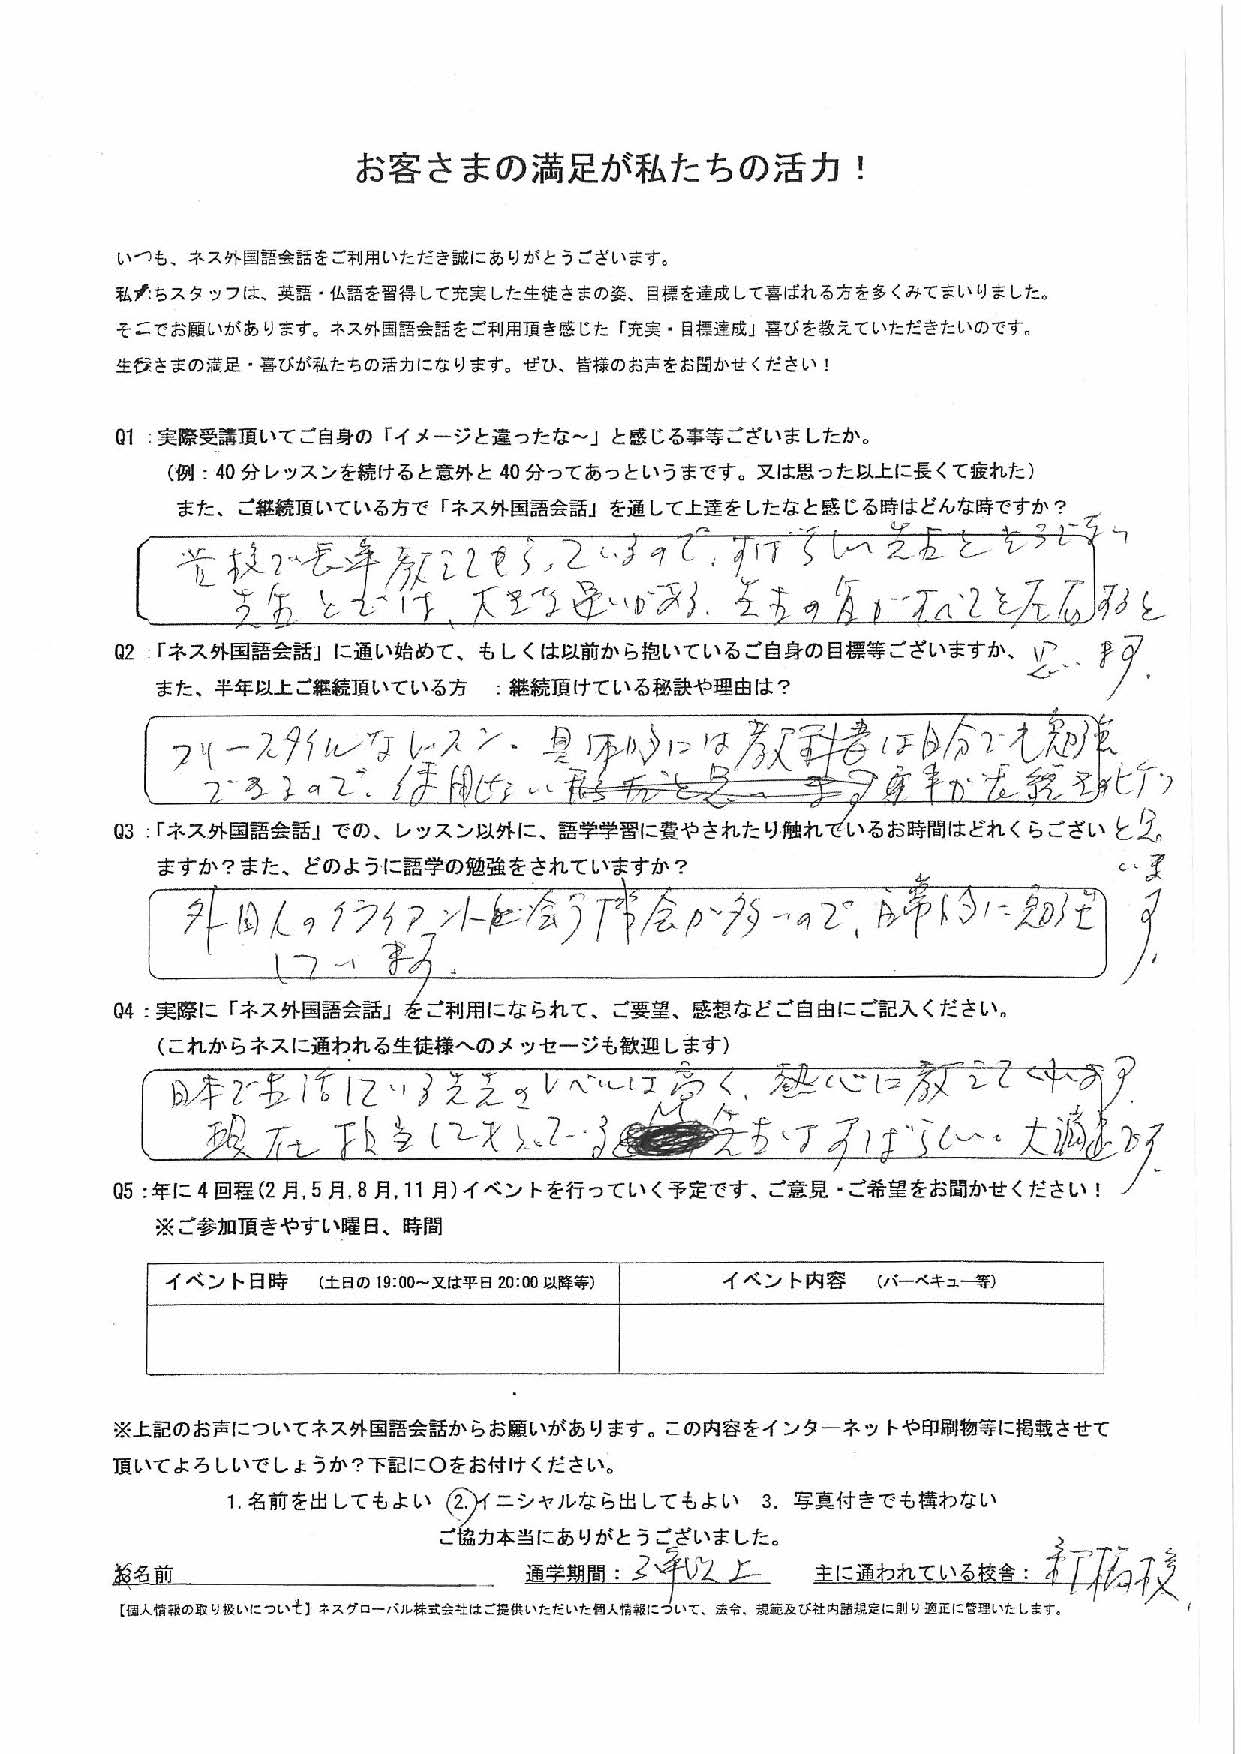 お客さまの満足が私たちの活力！
いつも、ネス外国語会話をご利用いただき誠にありがとうございます。
私たちスタッフは、英語・仏語を習得して充実した生徒さまの姿、目標を達成して喜ばれる方を多くみてまいりました。
そこでお願いがあります。ネス外国語会話をご利用頂き感じた「充実・目標達成」喜びを教えていただきたいのです。
生徒さまの満足・喜びが私たちの活力になります。ぜひ、皆様のお声をお聞かせください！
Q1：実際受講頂いてご自身の「イメージと違ったな～」と感じる事等ございましたか。
（例：40分レッスンを続けると意外と40分ってあっというまです。又は思った以上に長くて疲れた）
また、ご継続頂いている方で「ネス外国語会話」を通して上達をしたなと感じる時はどんな時ですか？
学校で長年教えてもらっているので、すばらしい先生とそうでない
先生とでは、大きな違いがある。先生の質がすべてを左右すると
思います。
Q2：「ネス外国語会話」に通い始めて、もしくは以前から抱いているご自身の目標等ございますか、
また、半年以上ご継続頂いている方　：継続頂けている秘訣や理由は？
フリースタイルなレッスン。具体的には教科書は自分でも勉強
できるので、使用しない
と思
います。
Q3：「ネス外国語会話」での、レッスン以外に、語学学習に費やされたり触れているお時間はどれくらござい
ますか？また、どのように語学の勉強をされていますか？
外国人のクライアントに会う機会が多いので、日常的に勉強
しています。
Q4：実際に「ネス外国語会話」をご利用になられて、ご要望、感想などご自由にご記入ください。
（これからネスに通われる生徒様へのメッセージも歓迎します）
日本で生活している先生のレベルは高く、熱心に教えてくれます。
現在担当してもらっている M 先生はすばらしい。大満足です。
Q5：年に4回程(2月,5月,8月,11月)イベントを行っていく予定です、ご意見・ご希望をお聞かせください！
※ご参加頂きやすい曜日、時間
イベント日時　（土日の19:00～又は平日20:00以降等）　イベント内容　（バーベキュー等）
※上記のお声についてネス外国語会話からお願いがあります。この内容をインターネットや印刷物等に掲載させて
頂いてよろしいでしょうか？下記に〇をお付けください。
1.名前を出してもよい　2.イニシャルなら出してもよい　3. 写真付きでも構わない
ご協力本当にありがとうございました。
お名前　通学期間：3年以上　主に通われている校舎：新板橋校
【個人情報の取り扱いについて】ネスグローバル株式会社はご提供いただいた個人情報について、法令、規範及び社内諸規定に則り適正に管理いたします。